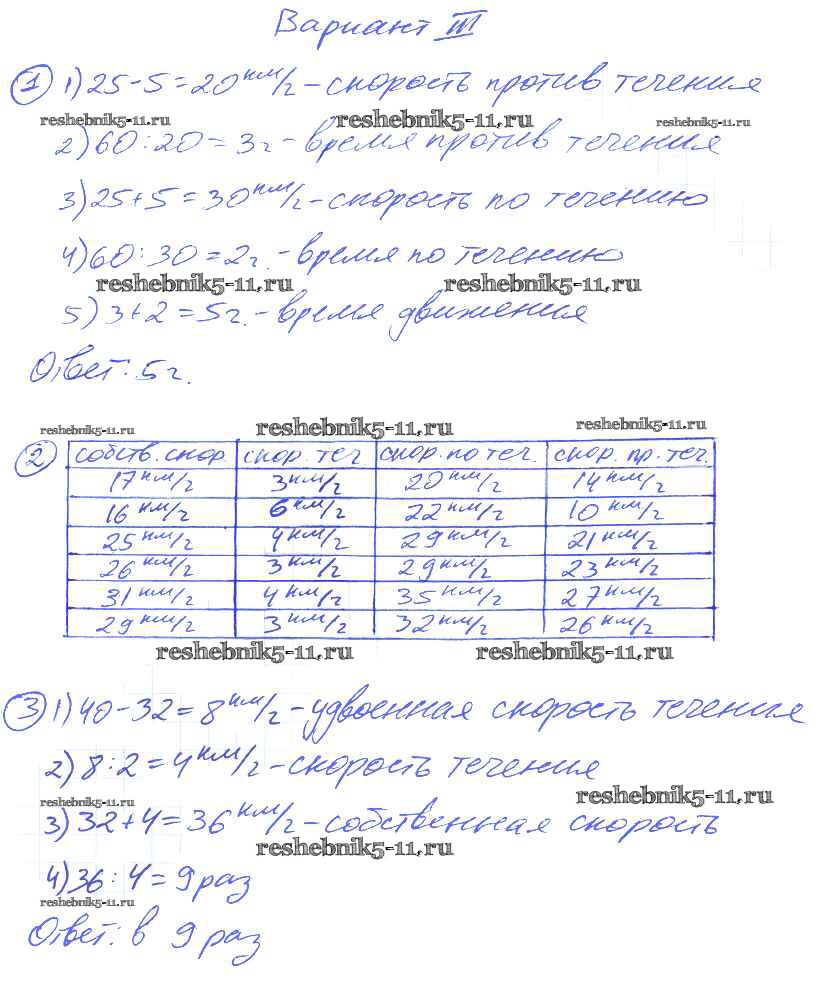 Вариант III
1 1) 25-5=20 км/г - скорость против течения
reshebnik5-11.ru reshebnik5-11.ru reshebnik5-11.ru
2) 60:20=3г - время против течения
3) 25+5=30 км/г - скорость по течению
4) 60:30=2г. - время по течению
reshebnik5-11.ru reshebnik5-11.ru
5) 3+2=5г. - время движения
Ответ: 5г.
reshebnik5-11.ru reshebnik5-11.ru reshebnik5-11.ru
2 собств. скор скор. теч скор. по теч. скор. пр. теч.
17 км/г 3 км/г 20 км/г 14 км/г
16 км/г 6 км/г 22 км/г 10 км/г
25 км/г 4 км/г 29 км/г 21 км/г
26 км/г 3 км/г 29 км/г 23 км/г
31 км/г 4 км/г 35 км/г 27 км/г
29 км/г 3 км/г 32 км/г 26 км/г
reshebnik5-11.ru reshebnik5-11.ru
3 1) 40-32=8 км/г - удвоенная скорость течения
2) 8:2=4 км/г - скорость течения
reshebnik5-11.ru reshebnik5-11.ru
3) 32+4=36 км/г - собственная скорость
reshebnik5-11.ru
4) 36:4=9 раз
reshebnik5-11.ru
Ответ: в 9 раз